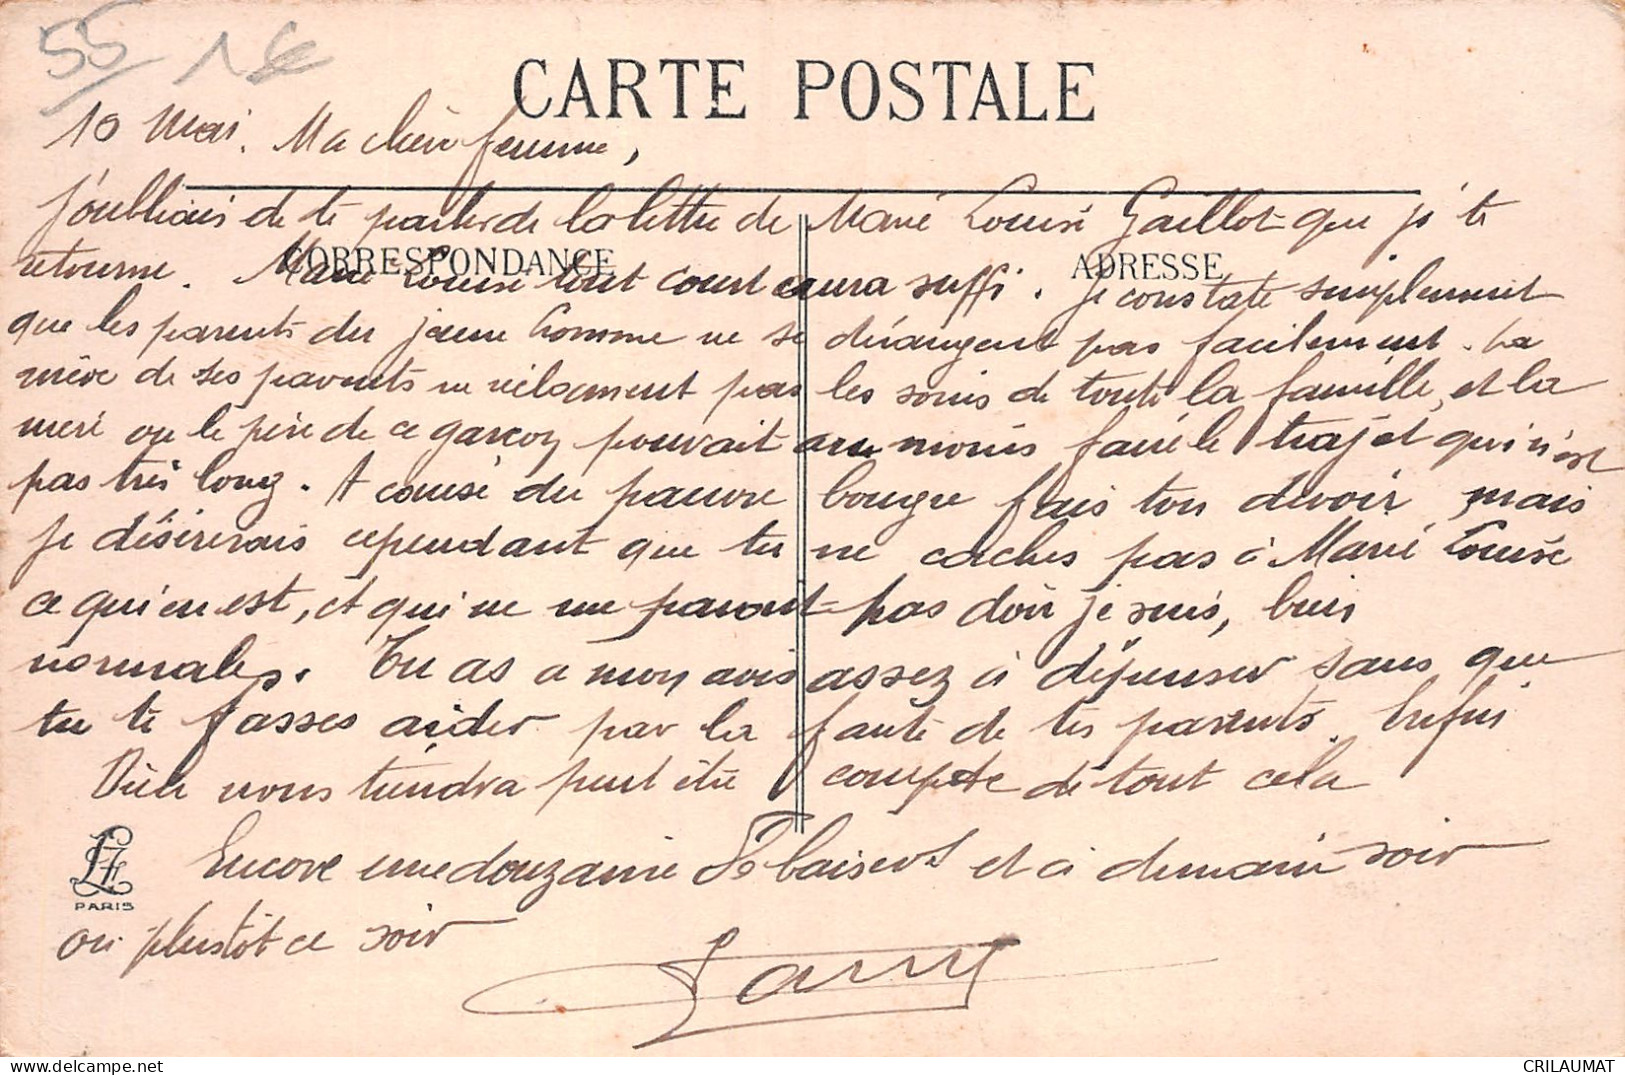 55 1€
CARTE POSTALE
10 Mai. Ma chère femme,
J'oubliais de te parler de la lettre de Marie Louise Gaillot que je te
CORRESPONDANCE ADRESSE
retourne. Marie Louise tout court aura suffi. Je constate simplement
que les parents du jeune homme ne se dérangent pas facilement. La
mère de ses parents ne réclament pas les soins de toute la famille, et la
mère ou le père de ce garçon pouvait au moins faire le trajet qui n'est
pas très long. A cause du pauvre bougre fais ton devoir mais
je désirerais cependant que tu ne caches pas à Marie Louise
ce qui en est, et qui ne me parait pas doir je suis, bien
normales. Tu as a mon avis assez à dépenser sans que
tu te fasses aider par la faute de tes parents. Enfin
Dieu nous tiendra peut être compte de tout cela
Encore une douzaine de baisers et à demain soir
ou plustôt ce soir
LF
PARIS
CRILAUMAT